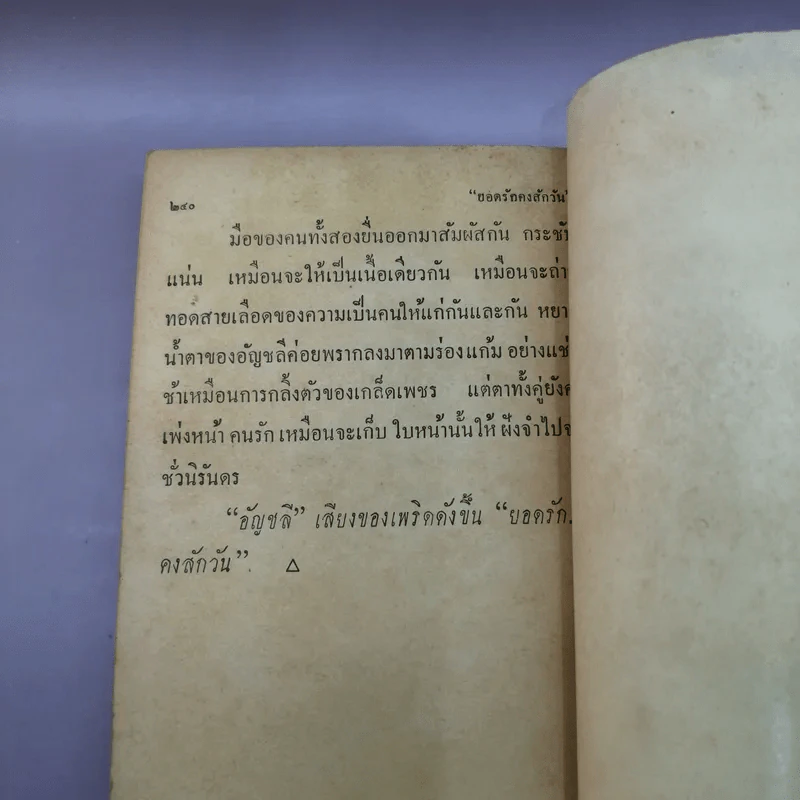 ๒๔๐ “ยอดรักคงสักวัน”
มือของคนทั้งสองยื่นออกมาสัมผัสกัน กระชับ
แน่น เหมือนจะให้เป็นเนื้อเดียวกัน เหมือนจะถ่าย
ทอดสายเลือดของความเป็นคนให้แก่กันและกัน หยา
น้ำตาของอัญชลีค่อยพรากลงมาตามร่องแก้ม อย่างแช่ม
ช้าเหมือนการกลิ้งตัวของเกล็ดเพชร แต่ตาทั้งคู่ยังค
เพ่งหน้า คนรัก เหมือนจะเก็บ ใบหน้านั้นให้ ฝังจำไปจ
ชั่วนิรันดร
“อัญชลี” เสียงของเพริดดังขึ้น “ยอดรัก.
คงสักวัน”. △